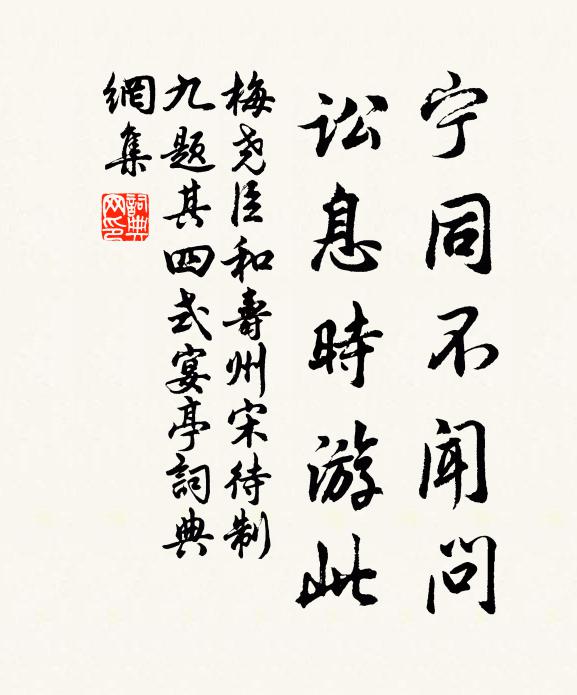 宁同不闻问
讼息時游此
梅尧臣和壽州宋待制
九题其四式宴亭詞典
網集
詞典网印